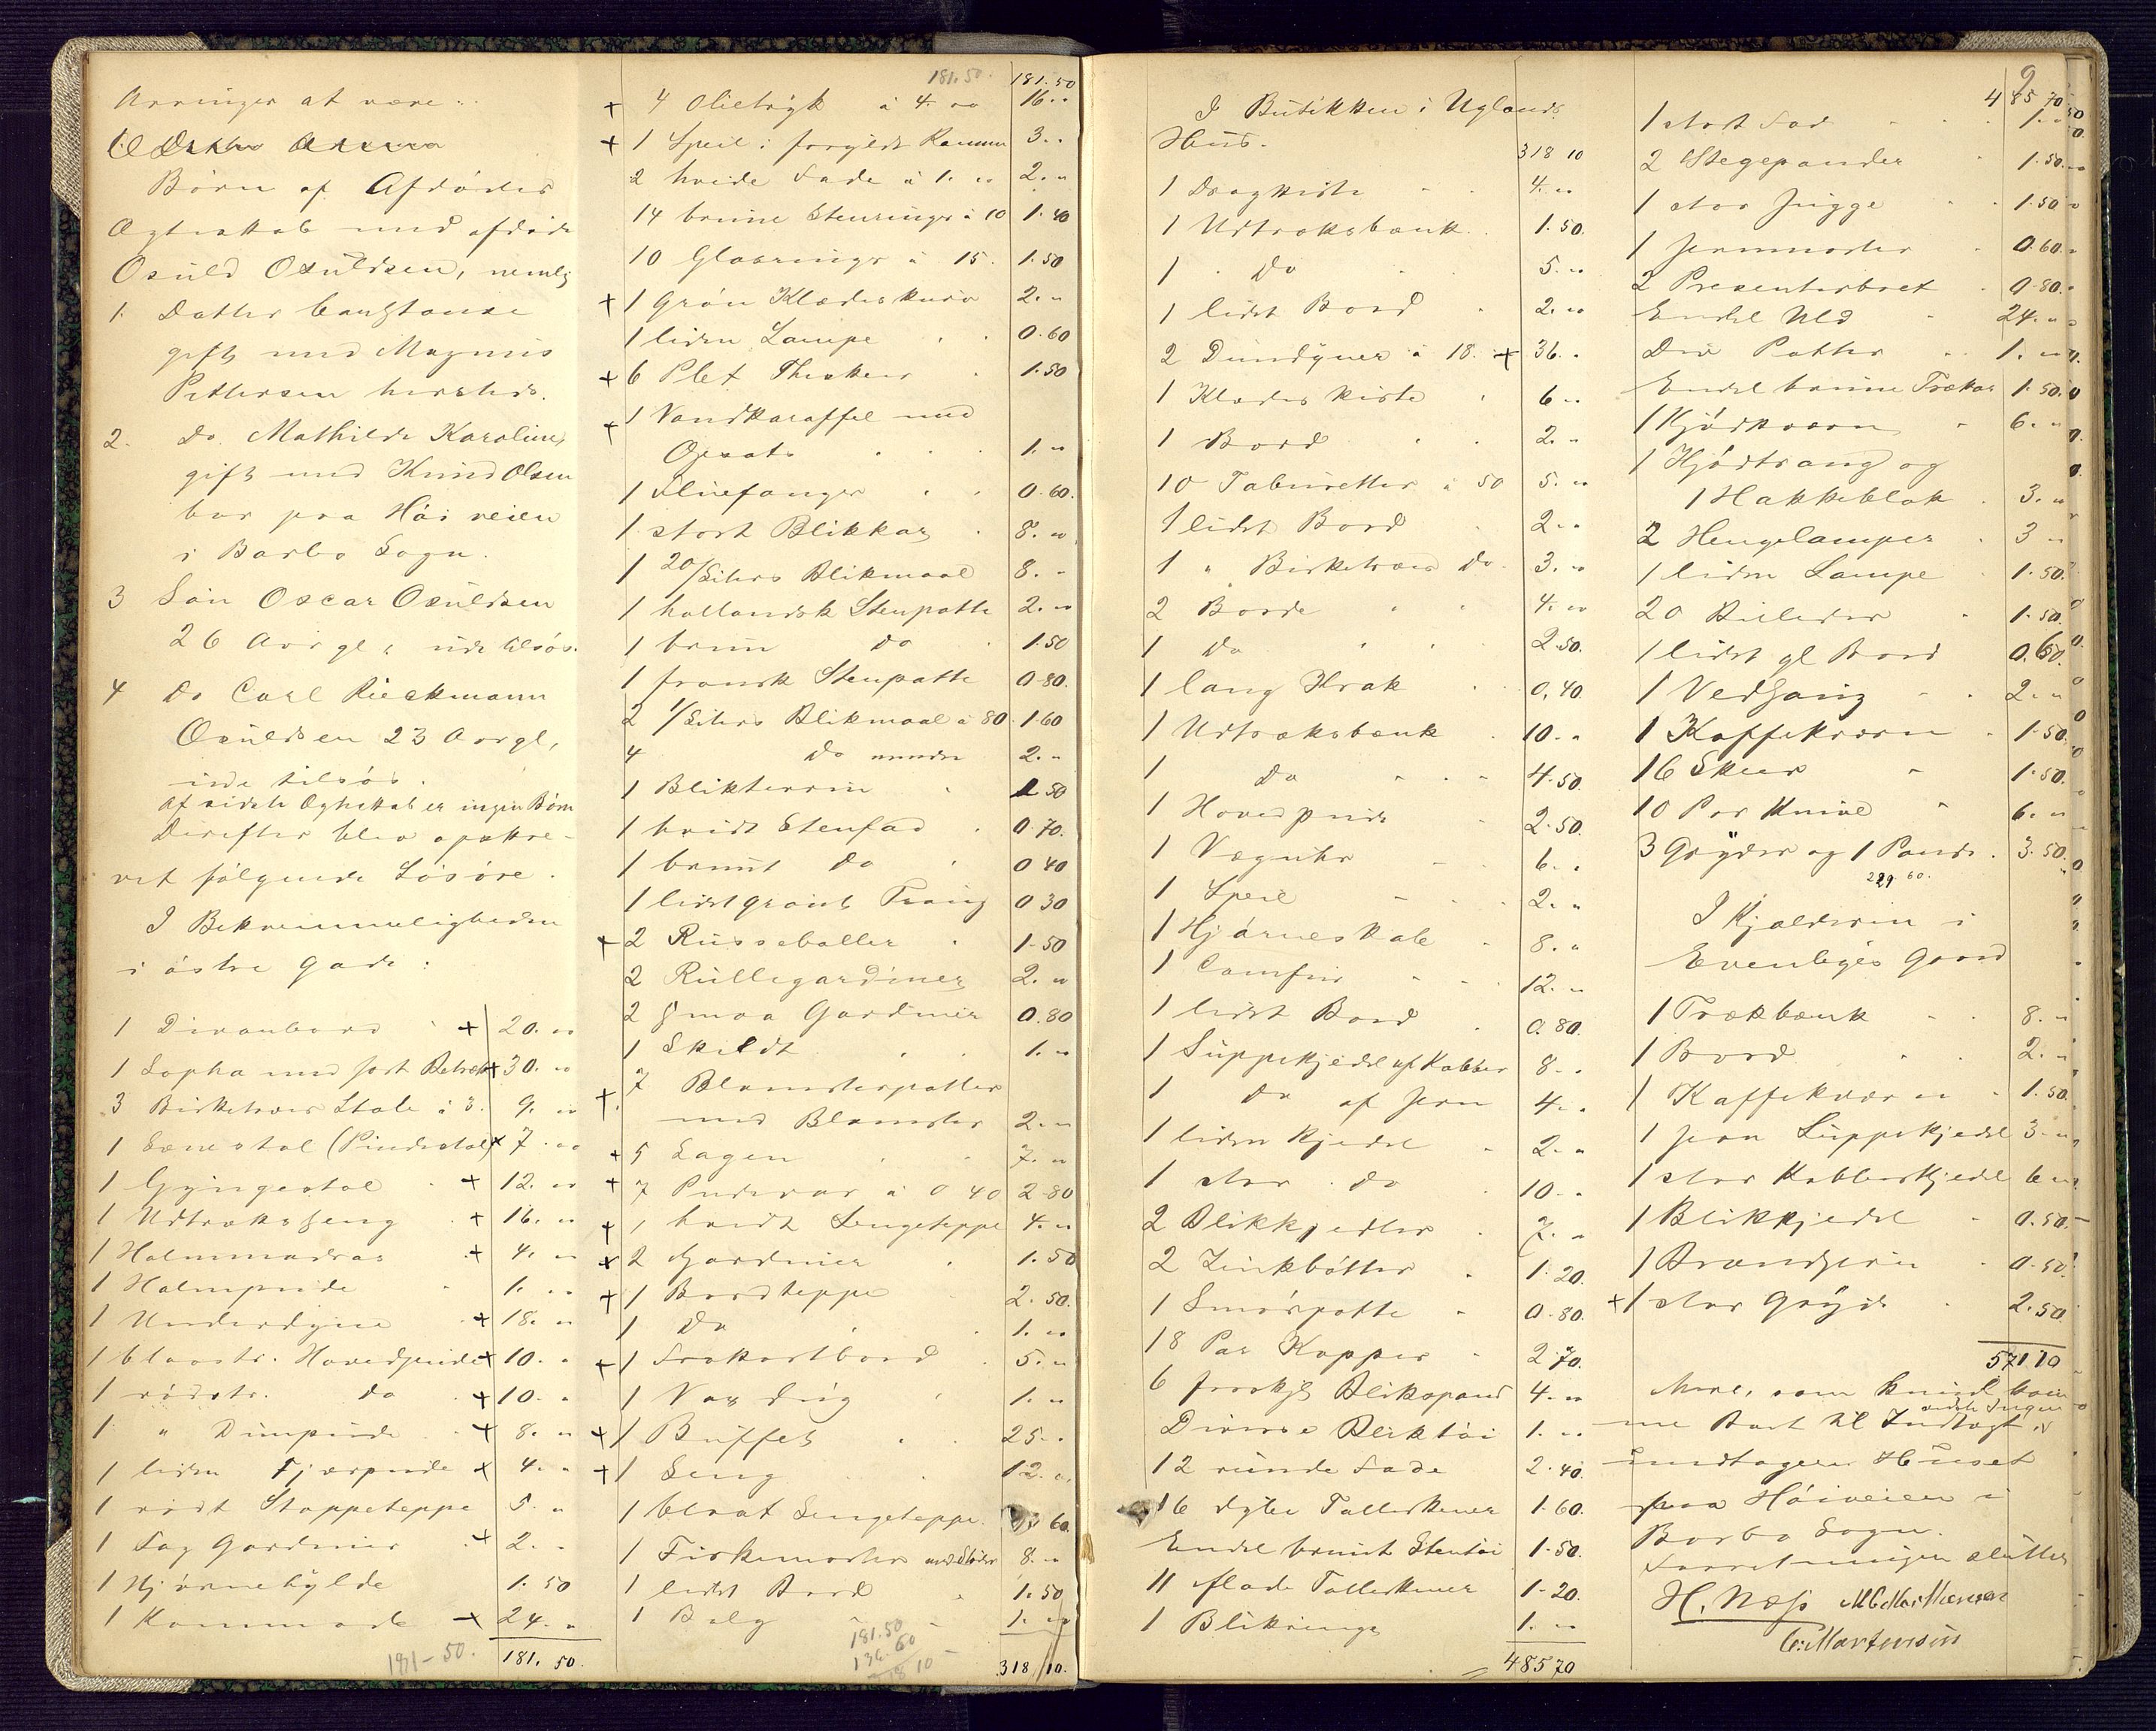 Arvinger at være:
Børn af Afdødes
Ægteskab med afdøde
Osuld Osuldsen, nemlig
1. Datter Constanse
gift med Magnus
Pettersen hersteds.
2. do. Mathilde Karoline,
gift med Knud Olsen
bor paa Høiveien
i Barbo Sogn.
3 Søn Oscar Osuldsen
26 Aar gl, ude tilsøs.
4 do Carl Rieckmann
Osuldsen 23 Aar gl,
ude tilsøs.
Af sidste Ægteskab er ingen Børn
Derefter blev opskre-
vet følgende Løsøre.
I Bekvemmeligheden
i østre Gade:
1 Divanbord + 20. "
1 Sopha med sort Betræk + 30. "
3 Birketræes Stole á 3. 9. "
1 Lænestol (Pindestol) x 7. "
1 Gyngestol + 12. "
1 Udtræksseng + 16. "
1 Halmmadras + 4. "
1 Halmpude 1. "
1 Underdyne + 18. "
1 blaastr. Hovedpude + 10. "
1 rødstr. do + 10. "
1 " Dunpude + 8. "
1 liden Fjærpude x 4. "
1 rødt Stoppeteppe 5. "
1 Fag Gardiner + 2. "
1 Hjørnehylde 1. 50
1 Kommode + 24. "
181-50. 181. 50.
181.50. 181.50
+ 4 Olietryk á 4. " 16. "
+ 1 Speil i forgyldt Ramme 3. "
2 hvide Fade á 1. " 2. "
14 brune Stenringer á 10 1. 40
10 Glasringe á 15. 1. 50
+ 1 Grøn Klædeskurv 2. "
1 liden Lampe 0. 60
+ 6 Plet Theskeer 1. 50
+ 1 Vandkaraffel med
Opsats 1. "
1 Fluefanger 0. 60.
1 stort Blikkar 8. "
1 20/Liters Blikmaal 8. "
1 hollandsk Stenpotte 2. "
1 brun do 1. 50
1 fransk Stenpotte 0. 80.
2 1/Liters Blikmaal á 80 1. 60
4 do mindre 2. "
1 Blikterrin 1 50
1 hvidt Stenfad 0. 70.
1 brunt do 0 40
1 lidet grønt Traug 0 30
+ 2 Russeboller 1. 50
2 Rullegardiner 2. "
2 smaa Gardiner 0. 80
1 Skildt 1. "
+ 7 Blomsterpotter
med Blomster 2. "
+ 5 Lagen 7. "
+ 7 Pudevar á 0 40 2. 80
+ 1 hvidt Sengeteppe 4. "
x 2 Gardiner 1. 50
+ 1 Bordteppe 2. 50.
1 do 1. "
+ 1 Frokostbord 5. "
1 Voxdug 1. "
+ 1 Buffet 25. "
+ 1 Seng 12. "
1 blaat Sengeteppe 60.
1 Fiskemorter med Støder 8. "
1 lidet Bord 1. 50
1 Balg 1. "
181.50
136.60
318 10
318/10.
I Butikken i Uglands
Hus. 318 10
1 Dragkiste 4. "
1 Udtræksbænk 1. 50.
1 do 5. "
1 lidet Bord 2. "
2 Dundyner á 18. + 36. "
1 Klædeskiste 6 "
1 Bord 2. "
10 Taburetter á 50 5. "
1 lidet Bord 2. "
1 " Birketræes do. 3. "
2 Borde 4. "
1 do 2. 50.
1 lang Krak 0, 40
1 Udtræksbænk 10. "
1 do 4. 50.
1 Hovedpude 2. 50.
1 Væguhr 6. "
1 Speil 2. "
1 Hjørneskab 8. "
1 Comfur 12. "
1 lidet Bord 0. 80.
1 Suppekjedel af Kobber 8. "
1 do af Jern 4. "
1 liden Kjedel 2. "
1 stor do 10. "
2 Blikkjedler 7. "
2 Zinkbøtter 1. 20.
1 Smørpotte 0. 80.
18 Par Kopper 2. 70.
6 forskjl Blikspand 4. "
Diverse Bliktøi 1. "
12 runde Fade 2. 40.
16 dybe Tallerkener 1. 60.
Endel brunt Stentøi 1. 50.
11 flade Tallerkener 1. 20.
1 Blikringe 1. "
485 70
9
485 70
1 stort Fad 1. "
2 Stegepander 1. 50.
1 stor Jugge 1. 50
1 Jernmorter 0. 60.
2 Presenterbret 0. 80.
Endel Uld 24. "
Div Potter 1. "
Endel brune Trækar 1. 50.
1 Kjødkværn 6. "
1 Kjødtraug og
1 Hakkeblok 3. "
2 Hengelamper 3 "
1 liden Lampe 1. 50.
20 Billeder 1. 50.
1 lidet gl Bord 0. 60.
1 Vedsaug 2. "
1 Kaffekværn 1. 50.
16 Skeer 1. 50.
10 Par Knive 6. "
3 Gryder og 1 Pande. 3. 50.
229 60.
I Kjælderen i
Evenbyes Gaard
1 Trækbænk 8. "
1 Bord 2. "
1 Kaffekværn 1. 50.
1 Jern Suppekjedel 3. "
1 stor Kobberkjedel 6 "
1 Blikkjedel 0. 50.
1 Brændjern 0. 50.
+ 1 stor Gryde 2. 50.
571 10
Mere, som kunde kom
me Boet til Indtægt,
vidste Ingen
undtagen Huset
paa Høiveien i
Barbo Sogn.
Forretningen sluttet
H. Næss
C. Martensen